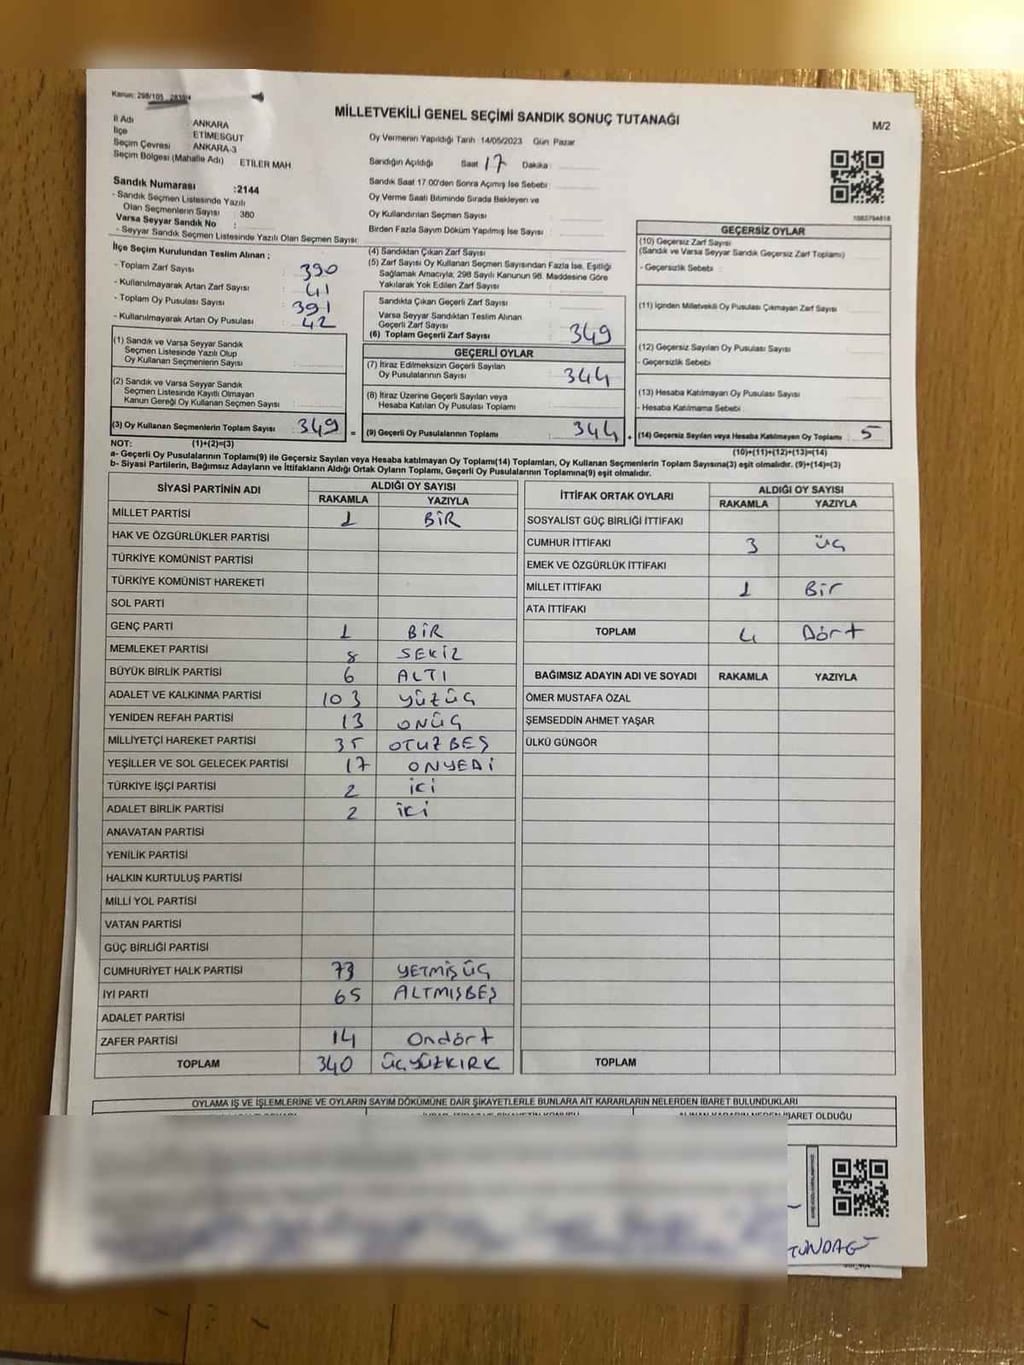 Kanun: 298/105
MİLLETVEKİLİ GENEL SEÇİMİ SANDIK SONUÇ TUTANAĞI
M/2
İl Adı ANKARA
İlçe ETİMESGUT
Seçim Çevresi ANKARA-3
Seçim Bölgesi (Mahalle Adı) ETİLER MAH
Sandık Numarası :2144
- Sandık Seçmen Listesinde Yazılı
Olan Seçmenlerin Sayısı : 380
Varsa Seyyar Sandık No :
- Seyyar Sandık Seçmen Listesinde Yazılı Olan Seçmen Sayısı:
Oy Vermenin Yapıldığı Tarih 14/05/2023 Gün Pazar
Sandığın Açıldığı Saat 17 Dakika
Sandık Saat 17.00'den Sonra Açılmış İse Sebebi
Oy Verme Saati Bitiminde Sırada Bekleyen ve
Oy Kullandırılan Seçmen Sayısı
Birden Fazla Sayım Döküm Yapılmış İse Sayısı
İlçe Seçim Kurulundan Teslim Alınan ;
- Toplam Zarf Sayısı : 390
- Kullanılmayarak Artan Zarf Sayısı : 41
- Toplam Oy Pusulası Sayısı : 391
- Kullanılmayarak Artan Oy Pusulası : 42
(1) Sandık ve Varsa Seyyar Sandık
Seçmen Listesinde Yazılı Olup
Oy Kullanan Seçmenlerin Sayısı :
(2) Sandık ve Varsa Seyyar Sandık
Seçmen Listesinde Kayıtlı Olmayan
Kanun Gereği Oy Kullanan Seçmen Sayısı :
(3) Oy Kullanan Seçmenlerin Toplam Sayısı : 349 =
(4) Sandıktan Çıkan Zarf Sayısı
(5) Zarf Sayısı Oy Kullanan Seçmen Sayısından Fazla İse, Eşitliği
Sağlamak Amacıyla, 298 Sayılı Kanunun 98. Maddesine Göre
Yakılarak Yok Edilen Zarf Sayısı
Sandıkta Çıkan Geçerli Zarf Sayısı
Varsa Seyyar Sandıktan Teslim Alınan
Geçerli Zarf Sayısı
(6) Toplam Geçerli Zarf Sayısı 349
GEÇERLİ OYLAR
(7) İtiraz Edilmeksizin Geçerli Sayılan
Oy Pusulalarının Sayısı 344
(8) İtiraz Üzerine Geçerli Sayılan veya
Hesaba Katılan Oy Pusulası Toplamı
(9) Geçerli Oy Pusulalarının Toplamı 344 +
GEÇERSİZ OYLAR
(10) Geçersiz Zarf Sayısı
(Sandık ve Varsa Seyyar Sandık Geçersiz Zarf Toplamı)
- Geçersizlik Sebebi
(11) İçinden Milletvekili Oy Pusulası Çıkmayan Zarf Sayısı
(12) Geçersiz Sayılan Oy Pusulası Sayısı
- Geçersizlik Sebebi
(13) Hesaba Katılmayan Oy Pusulası Sayısı
- Hesaba Katılmama Sebebi
(14) Geçersiz Sayılan veya Hesaba Katılmayan Oy Toplamı 5
NOT: (1)+(2)=(3) (10)+(11)+(12)+(13)=(14)
a- Geçerli Oy Pusulasının Toplamı(9) ile Geçersiz Sayılan veya Hesaba Katılmayan Oy Toplamı(14) Toplamları, Oy Kullanan Seçmenlerin Toplam Sayısına(3) eşit olmalıdır. (9)+(14)=(3)
b- Siyasi Partilerin, Bağımsız Adayların ve İttifakların Aldığı Ortak Oyların Toplamı, Geçerli Oy Pusulalarının Toplamına(9) eşit olmalıdır.
SİYASİ PARTİNİN ADI ALDIĞI OY SAYISI
RAKAMLA YAZIYLA
MİLLET PARTİSİ 1 BİR
HAK VE ÖZGÜRLÜKLER PARTİSİ
TÜRKİYE KOMÜNİST PARTİSİ
TÜRKİYE KOMÜNİST HAREKETİ
SOL PARTİ
GENÇ PARTİ 1 BİR
MEMLEKET PARTİSİ 8 SEKİZ
BÜYÜK BİRLİK PARTİSİ 6 ALTI
ADALET VE KALKINMA PARTİSİ 103 YÜZÜÇ
YENİDEN REFAH PARTİSİ 13 ONÜÇ
MİLLİYETÇİ HAREKET PARTİSİ 35 OTUZBEŞ
YEŞİLLER VE SOL GELECEK PARTİSİ 17 ONYEDİ
TÜRKİYE İŞÇİ PARTİSİ 2 İKİ
ADALET BİRLİK PARTİSİ 2 İKİ
ANAVATAN PARTİSİ
YENİLİK PARTİSİ
HALKIN KURTULUŞ PARTİSİ
MİLLİ YOL PARTİSİ
VATAN PARTİSİ
GÜÇ BİRLİĞİ PARTİSİ
CUMHURİYET HALK PARTİSİ 73 YETMİŞ ÜÇ
İYİ PARTİ 65 ALTMIŞBEŞ
ADALET PARTİSİ
ZAFER PARTİSİ 14 Ondört
TOPLAM 340 ÜÇYÜZKIRK
İTTİFAK ORTAK OYLARI ALDIĞI OY SAYISI
RAKAMLA YAZIYLA
SOSYALİST GÜÇ BİRLİĞİ İTTİFAKI
CUMHUR İTTİFAKI 3 üç
EMEK VE ÖZGÜRLÜK İTTİFAKI
MİLLET İTTİFAKI 1 Bir
ATA İTTİFAKI
TOPLAM 4 Dört
BAĞIMSIZ ADAYIN ADI VE SOYADI RAKAMLA YAZIYLA
ÖMER MUSTAFA ÖZAL
ŞEMSEDDİN AHMET YAŞAR
ÜLKÜ GÜNGÖR
TOPLAM
OYLAMA İŞ VE İŞLEMLERİNE VE OYLARIN SAYIM DÖKÜMÜNE DAİR ŞİKAYETLERLE BUNLARA AİT KARARLARIN NELERDEN İBARET BULUNDUKLARI
İBARET OLDUĞU